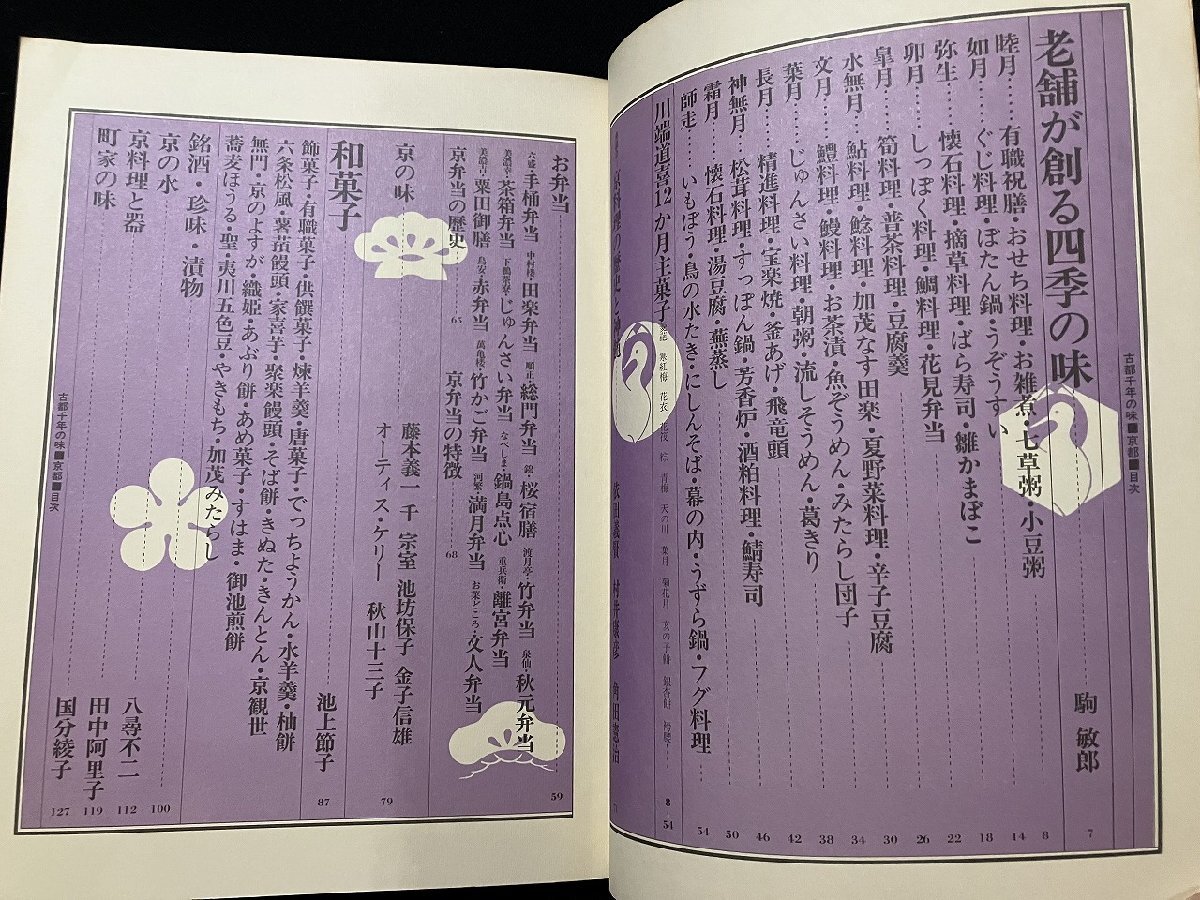 古都千年の味■京都■目次
老舗が創る四季の味 駒 敏郎 7
睦月……有職祝膳・おせち料理・お雑煮・七草粥・小豆粥 8
如月……ぐじ料理・ぼたん鍋・うぞうすい 14
弥生……懐石料理・摘草料理・ばら寿司・雛かまぼこ 18
卯月……しっぽく料理・鯛料理・花見弁当 22
皐月……筍料理・普茶料理・豆腐羹 26
水無月……鮎料理・鯰料理・加茂なす田楽・夏野菜料理・辛子豆腐 30
文月……鱧料理・鰻料理・お茶漬・魚ぞうめん・みたらし団子 34
葉月……じゅんさい料理・朝粥・流しそうめん・葛きり 38
長月……精進料理・宝楽焼・釜あげ・飛竜頭 42
神無月……松茸料理・すっぽん鍋・芳香炉・酒粕料理・鯖寿司 46
霜月……懐石料理・湯豆腐・蕪蒸し 50
師走……いもぼう・鳥の水たき・にしんそば・幕の内・うずら鍋・フグ料理 54
川端道喜12か月主菓子 寒紅梅 花衣 粽 青梅 天の川 葉月 菊花月 亥の子餅 銀杏餅 8 54
お弁当 59
六盛・手桶弁当 中村楼・田楽弁当 順正・総門弁当 錦・桜宿膳 渡月亭・竹弁当 泉仙・秋元弁当
美濃幸・茶箱弁当 下鴨茶寮・じゅんさい弁当 なべしま・鍋島点心 重兵衛・離宮弁当
美濃吉・粟田御膳 鳥安・赤弁当 萬亀楼・竹かご弁当 河繁・満月弁当 お菜どころ・文人弁当
京弁当の歴史 65 京弁当の特徴 68
京の味 藤本義一 千 宗室 池坊保子 金子信雄 79
オーティス・ケリー 秋山十三子
和菓子 池上節子 87
飾菓子・有職菓子・供饌菓子・煉羊羹・唐菓子・でっちようかん・水羊羹・柚餅
六条松風・薯蕷饅頭・家喜芋・聚楽饅頭・そば餅・きぬた・きんとん・京観世
無門・京のよすが・織姫・あぶり餅・あめ菓子・すはま・御池煎餅
蕎麦ほうる・聖・夷川五色豆・やきもち・加茂みたらし
銘酒・珍味・漬物 100
京の水 八尋不二 112
京料理と器 田中阿里子 119
町家の味 国分綾子 127
古都千年の味■京都■目次